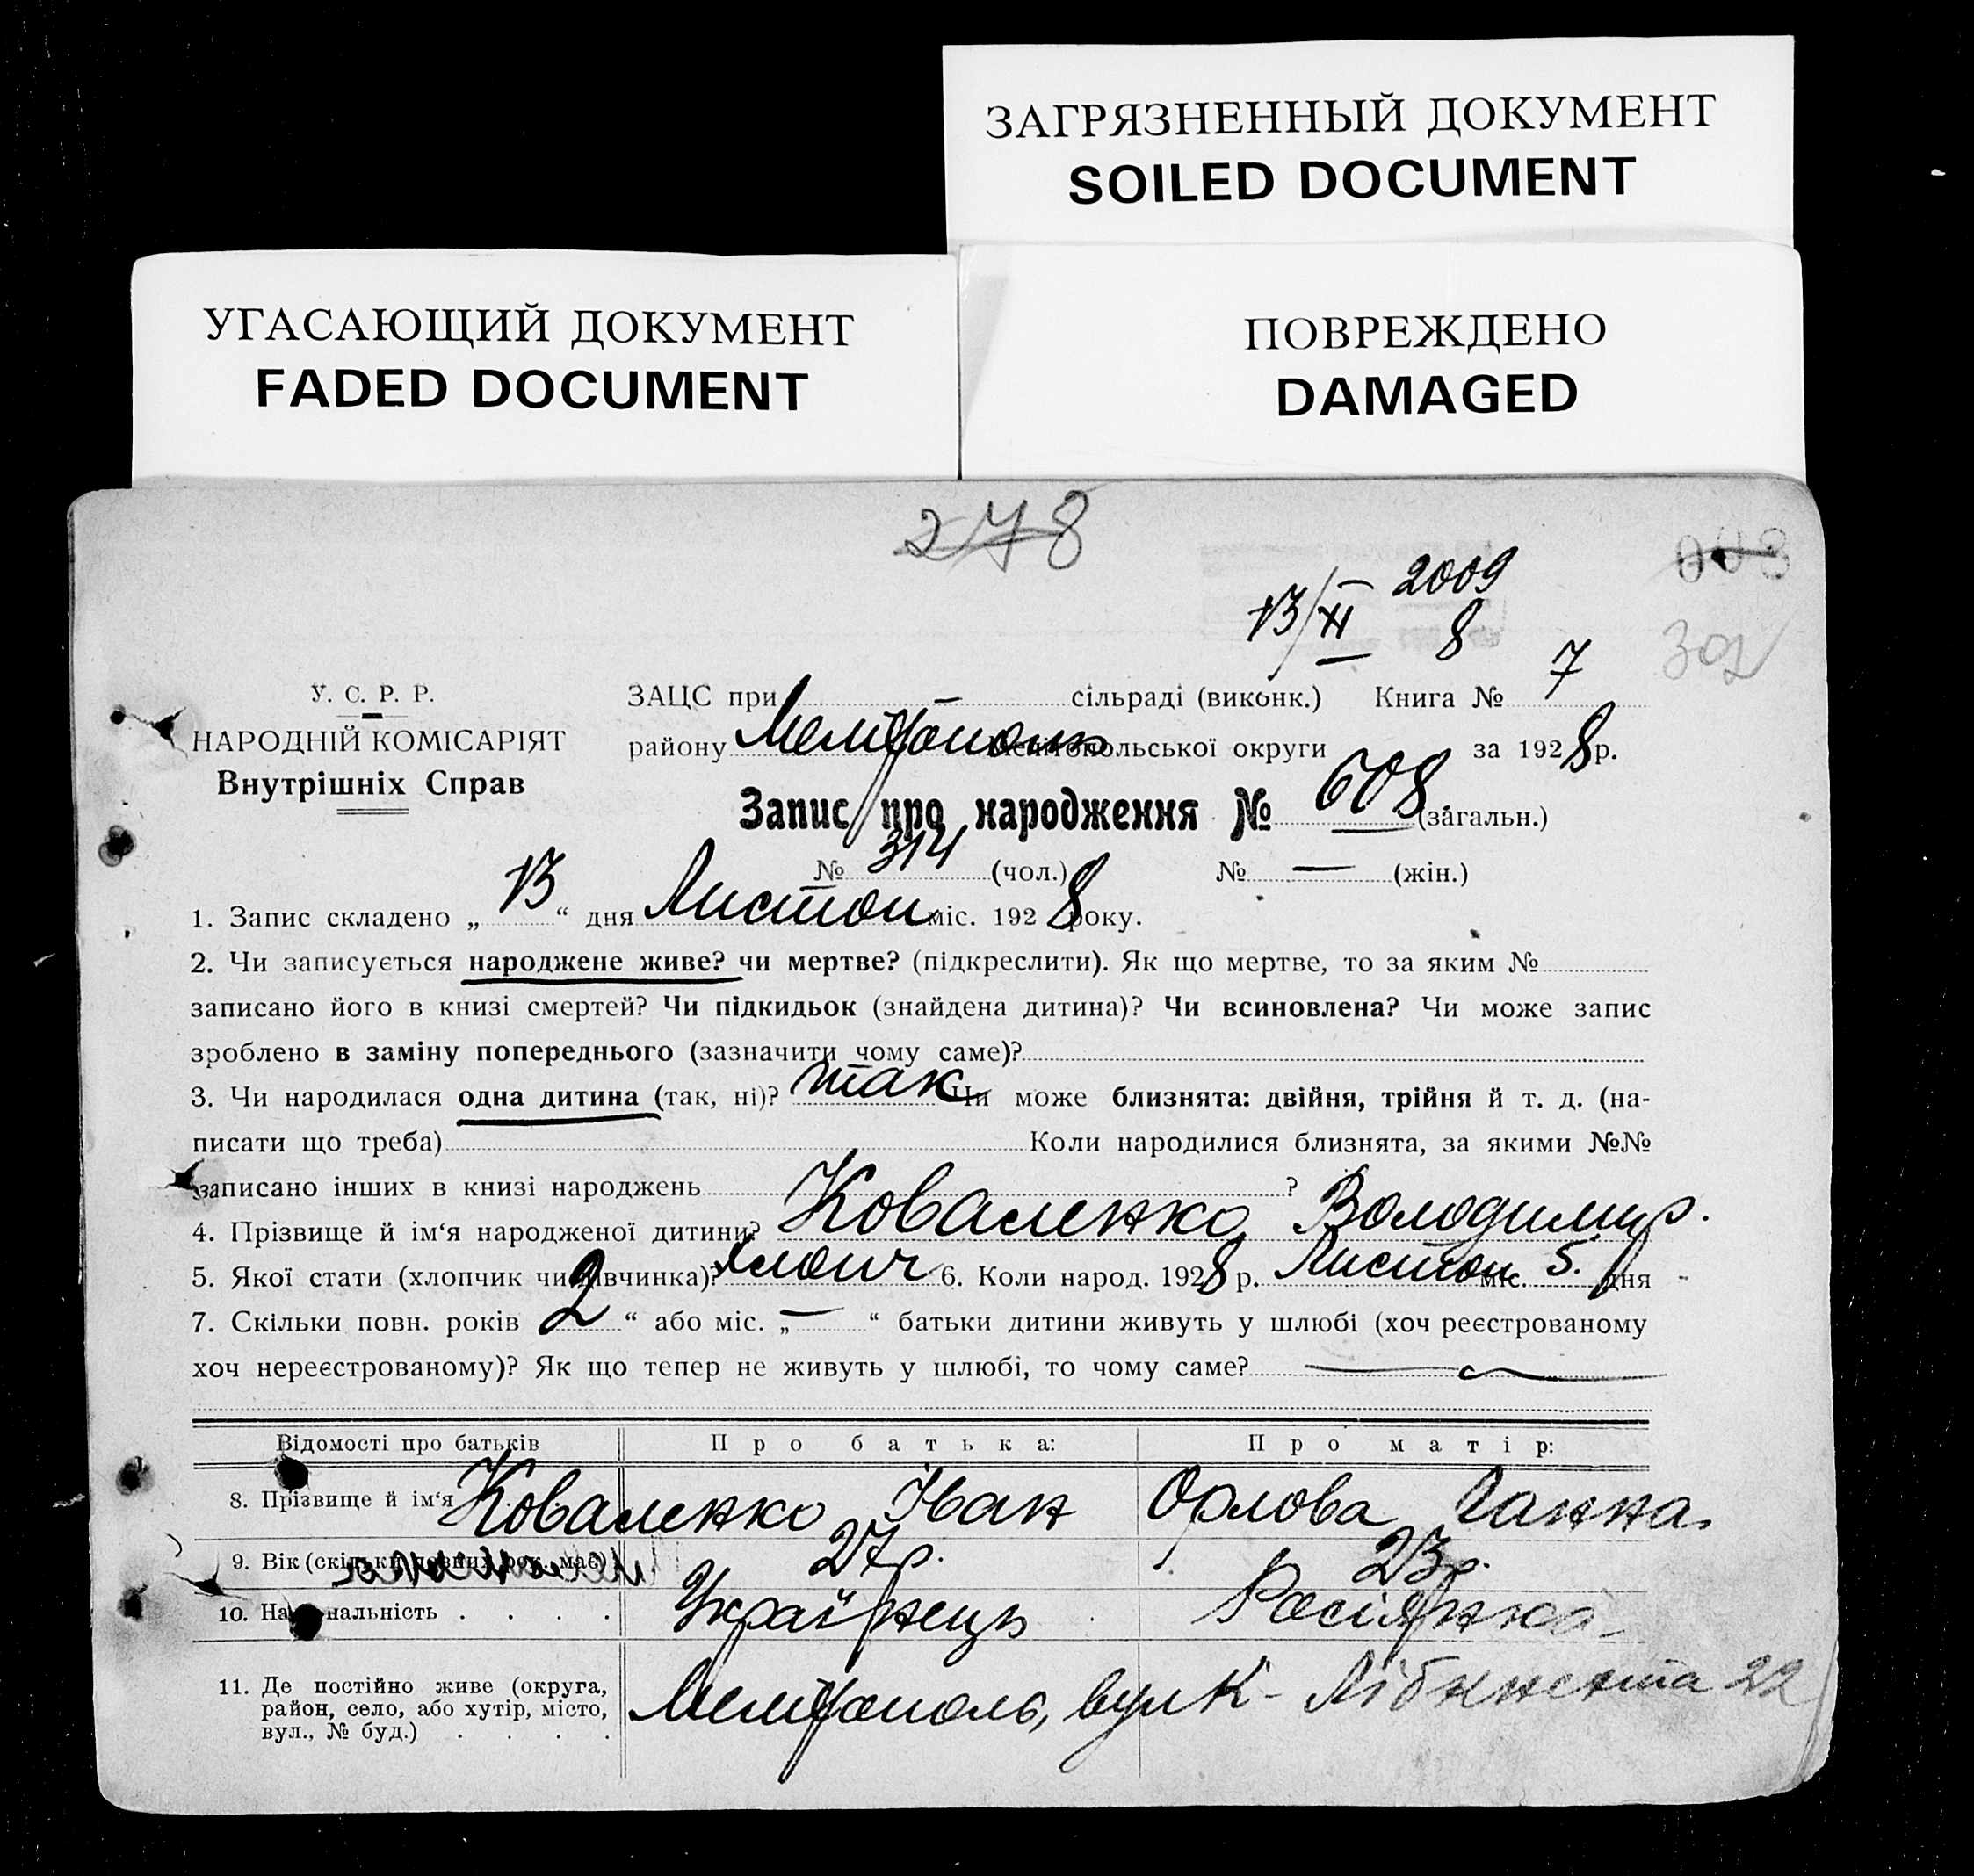 ЗАГРЯЗНЕННЫЙ ДОКУМЕНТ
SOILED DOCUMENT
УГАСАЮЩИЙ ДОКУМЕНТ
FADED DOCUMENT
ПОВРЕЖДЕНО
DAMAGED
278
003
2009
13/XI 8
302
У. С. Р. Р.
НАРОДНІЙ КОМІСАРІЯТ
Внутрішніх Справ
ЗАЦС при — сільраді (виконк.) Книга № 7
району Мелітополь Мелітопольської округи за 1928 р.
Запис про народження № 608 (загальн.)
№ 314 (чол.) № — (жін.)
1. Запис складено „ 13 “ дня Листоп міс. 1928 року.
2. Чи записується народжене живе? чи мертве? (підкреслити). Як що мертве, то за яким №
записано його в книзі смертей? Чи підкидьок (знайдена дитина)? Чи всиновлена? Чи може запис
зроблено в заміну попереднього (зазначити чому саме)?
3. Чи народилася одна дитина (так, ні)? так Чи може близнята: двійня, трійня й т. д. (на-
писати що треба) Коли народилися близнята, за якими №№
записано інших в книзі народжень ?
4. Прізвище й ім‘я народженої дитини? Коваленко Володимир.
5. Якої стати (хлопчик чи дівчинка)? Хлопч 6. Коли народ. 1928 р. Листоп міс. 5. дня
7. Скільки повн. років „ 2 “ або міс. „ — “ батьки дитини живуть у шлюбі (хоч реєстрованому
хоч нереєстрованому)? Як що тепер не живуть у шлюбі, то чому саме? —
Відомості про батьків Про батька: Про матір:
8. Прізвище й ім‘я Коваленко Іван Орлова Ганна.
9. Вік (скільки повних рок. має) 27р. 23р.
10. Національність . . . . Українець Росіянка
11. Де постійно живе (округа,
район, село, або хутір, місто,
вул., № буд.) . . . .
Мелітополь, вул К- Лібкнехта 22